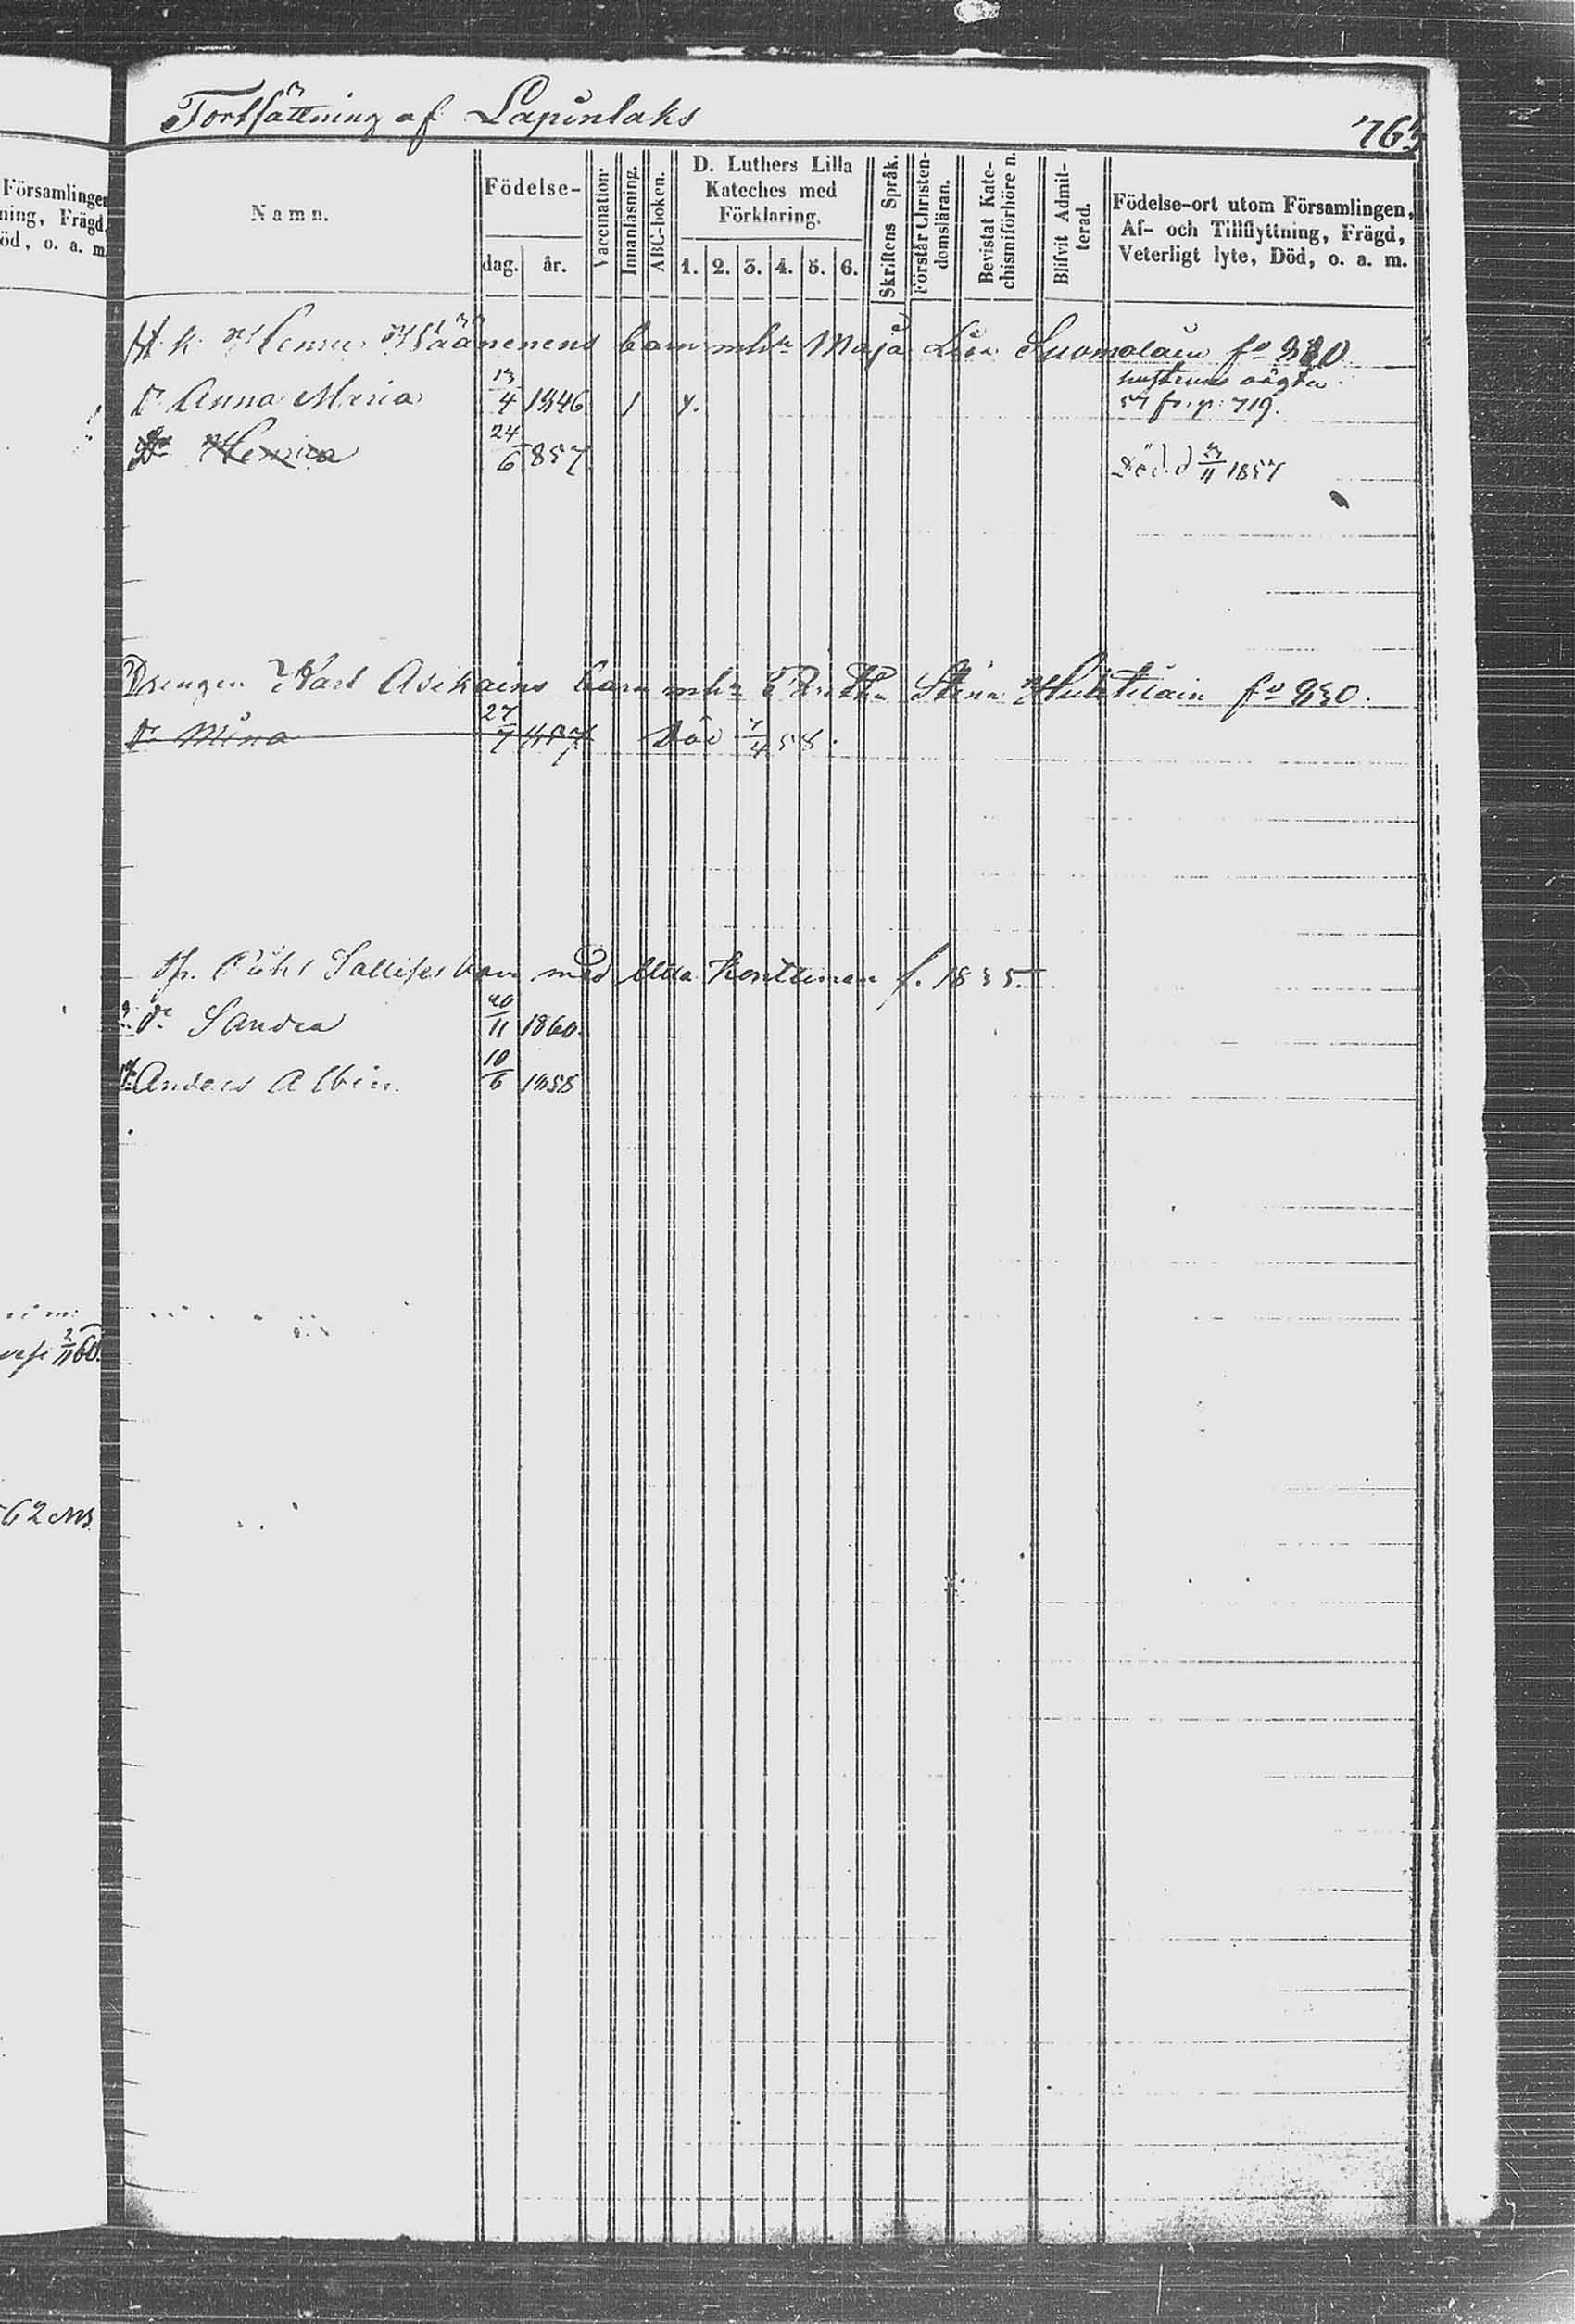 Fortsättning af Lapinlaks
765
Församlingen
ning, Frägd,
öd, o. a. m
Namn.
Födelse-
dag. år.
Vaccination.
Innanläsning.
ABC-boken.
D. Luthers Lilla
Kateches med
Förklaring.
1. 2. 3. 4. 5. 6.
Skriftens Språk.
Förstår Christen-
domsläran.
Bevistat Kate-
chismiförhören.
Blifvit Admit-
terad.
Födelse-ort utom Församlingen,
Af- och Tillflyttning, Frägd,
Veterligt lyte, Död, o. a. m.
barn Maja Lisa Suomolain
hustruns oägta
Dr Anna Maria 13/4 1846 1 57 fr. p. 719.
Dr Henrica 24/6 857 Död d /11 1857
Drengen Karl Asikains barn Stina
Dr Mina 27/7 1857 Död 7/4 58.
Påhl barn med Konttinen f. 1835.
Dr Sandra 20/11 1860.
Anders Albin. 10/6 1858
2/11 60.
62